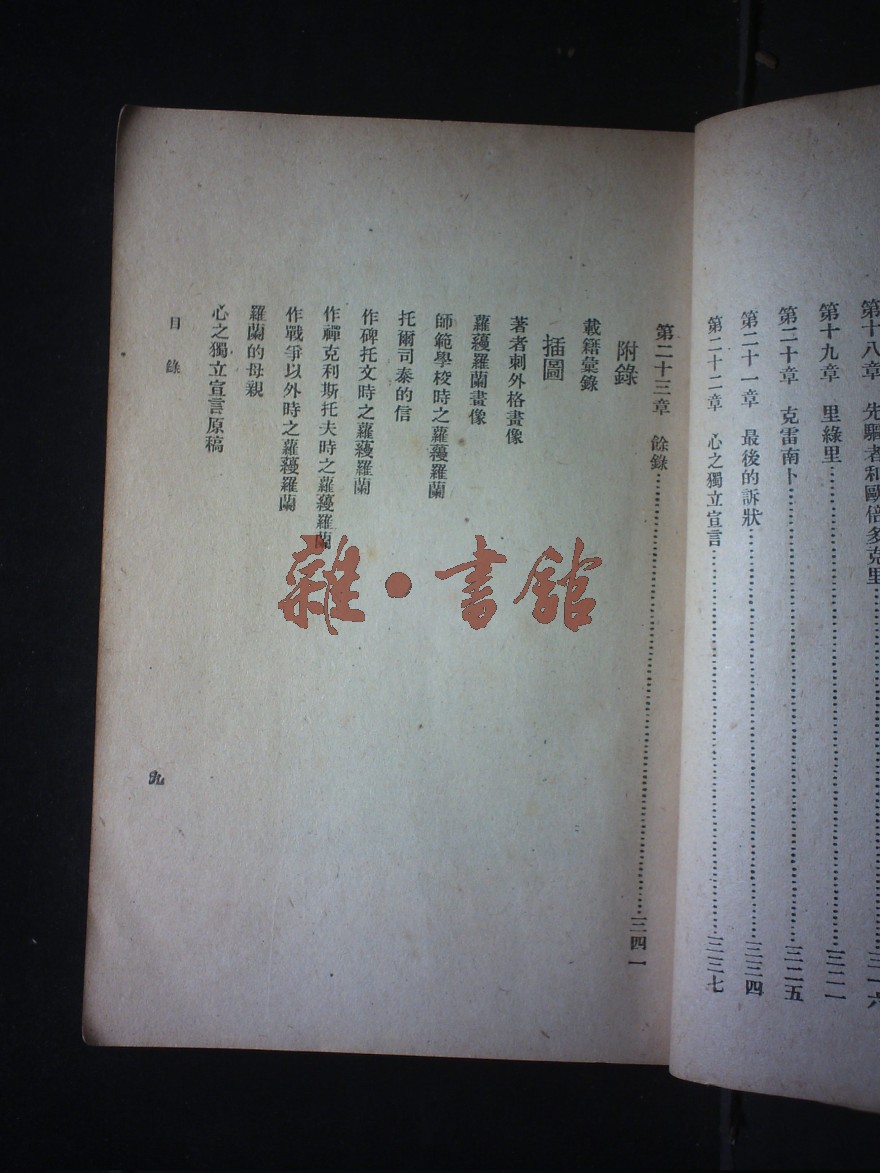 第十八章 先驅者和歐倍多克里………三一六
第十九章 里綠里………三二一
第二十章 克雷南卜………三二五
第二十一章 最後的訴狀………三三四
第二十二章 心之獨立宣言………三三七
第二十三章 餘錄………三四一
附錄
載籍彙錄
插圖
著者刺外格畫像
蘿蘰羅蘭畫像
師範學校時之蘿蘰羅蘭
托爾司泰的信
作碑托文時之蘿蘰羅蘭
作禪克利斯托夫時之蘿蘰羅蘭
作戰爭以外時之蘿蘰羅蘭
羅蘭的母親
心之獨立宣言原稿
目錄
九
雜·書館